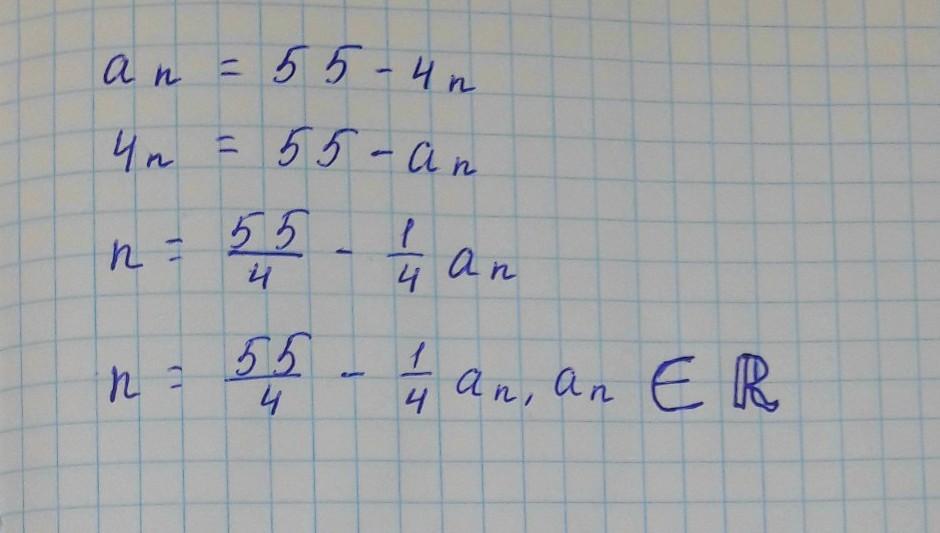 aₙ = 55 - 4n
4n = 55 - aₙ
n = 55/4 - 1/4 aₙ
n = 55/4 - 1/4 aₙ, aₙ ∈ ℝ